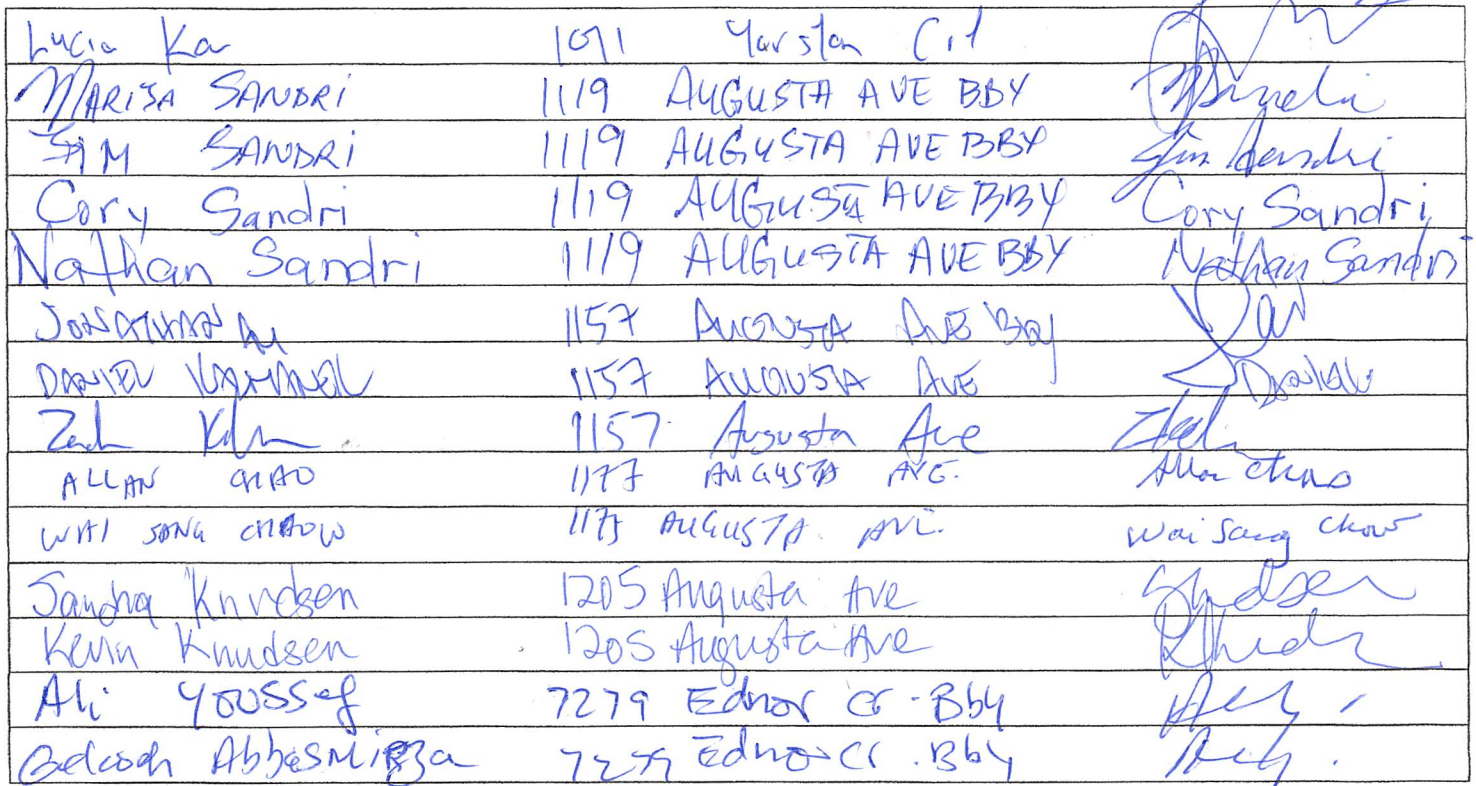 Lucia Ka 1091 Yarston Crt
MARISA SANDRI 1119 AUGUSTA AVE BBY
JIM SANDRI 1119 AUGUSTA AVE BBY Jim Sandri
Cory Sandri 1119 AUGUSTA AVE BBY Cory Sandri
Nathan Sandri 1119 AUGUSTA AVE BBY Nathan Sandri
JONATHAN 1157 AUGUSTA AVE BBY
DANIEL 1157 AUGUSTA AVE Daniel
1157 Augusta Ave
ALLAN CHAO 1177 AUGUSTA AVE. Allan Chao
WAI SANG CHOW 1177 AUGUSTA AVE. Wai Sang Chow
Sandra Knudsen 1205 Augusta Ave
Kevin Knudsen 1205 Augusta Ave
Ali Youssef 7279 Ednor Cr. Bby
AbbasMirza 7279 Ednor Cr. Bby